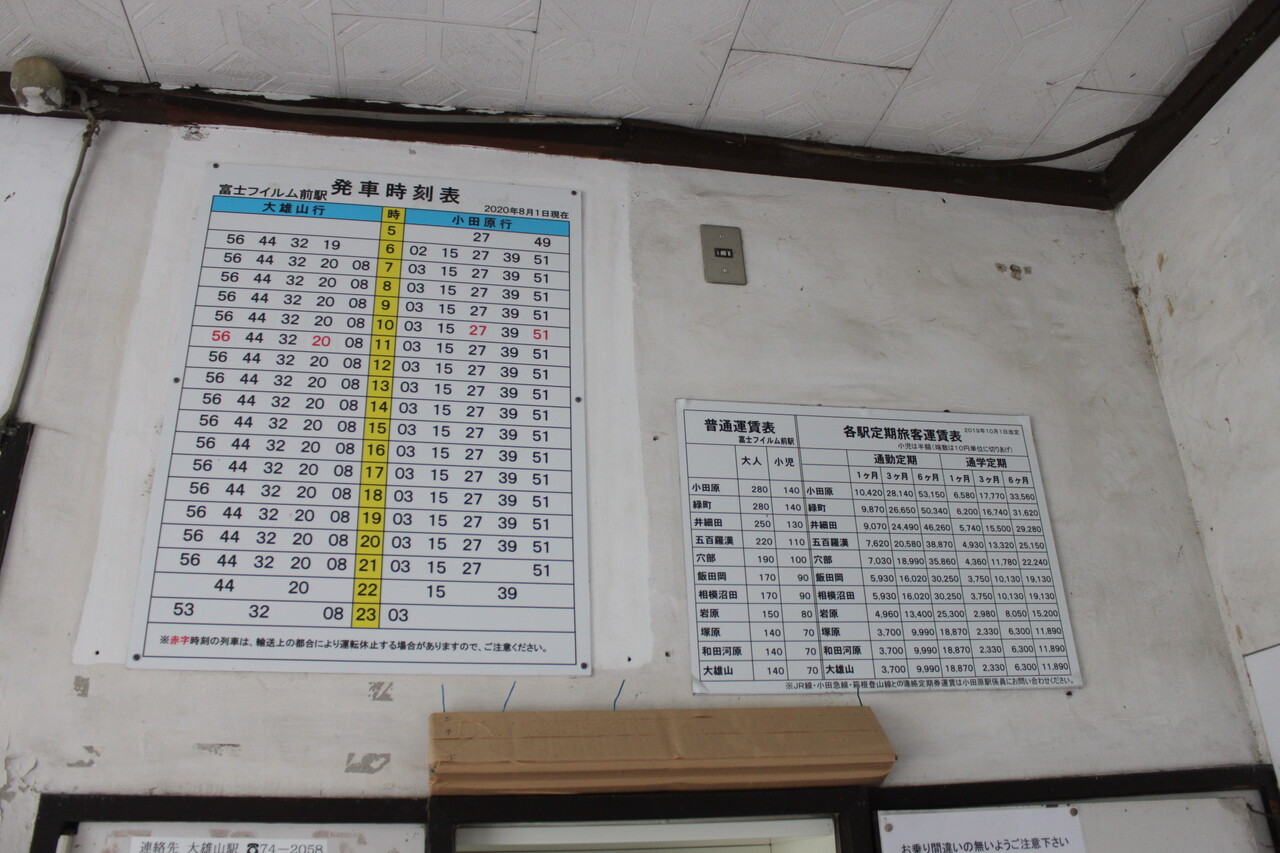 富士フイルム前駅 発車時刻表
2020年8月1日現在
大雄山行 時 小田原行
5 27 49
56 44 32 19 6 02 15 27 39 51
56 44 32 20 08 7 03 15 27 39 51
56 44 32 20 08 8 03 15 27 39 51
56 44 32 20 08 9 03 15 27 39 51
56 44 32 20 08 10 03 15 27 39 51
56 44 32 20 08 11 03 15 27 39 51
56 44 32 20 08 12 03 15 27 39 51
56 44 32 20 08 13 03 15 27 39 51
56 44 32 20 08 14 03 15 27 39 51
56 44 32 20 08 15 03 15 27 39 51
56 44 32 20 08 16 03 15 27 39 51
56 44 32 20 08 17 03 15 27 39 51
56 44 32 20 08 18 03 15 27 39 51
56 44 32 20 08 19 03 15 27 39 51
56 44 32 20 08 20 03 15 27 39 51
56 44 32 20 08 21 03 15 27 51
44 20 22 15 39
53 32 08 23 03
※赤字時刻の列車は、輸送上の都合により運転休止する場合がありますので、ご注意ください。
普通運賃表
富士フイルム前駅
大人 小児
小田原 280 140
緑町 280 140
井細田 250 130
五百羅漢 220 110
穴部 190 100
飯田岡 170 90
相模沼田 170 90
岩原 150 80
塚原 140 70
和田河原 140 70
大雄山 140 70
各駅定期旅客運賃表 2019年10月1日改定
小児は半額(端数は10円単位に切りあげ)
通勤定期 通学定期
1ヶ月 3ヶ月 6ヶ月 1ヶ月 3ヶ月 6ヶ月
小田原 10,420 28,140 53,150 6,580 17,770 33,560
緑町 9,870 26,650 50,340 6,200 16,740 31,620
井細田 9,070 24,490 46,260 5,740 15,500 29,280
五百羅漢 7,620 20,580 38,870 4,930 13,320 25,150
穴部 7,030 18,990 35,860 4,360 11,780 22,240
飯田岡 5,930 16,020 30,250 3,750 10,130 19,130
相模沼田 5,930 16,020 30,250 3,750 10,130 19,130
岩原 4,960 13,400 25,300 2,980 8,050 15,200
塚原 3,700 9,990 18,870 2,330 6,300 11,890
和田河原 3,700 9,990 18,870 2,330 6,300 11,890
大雄山 3,700 9,990 18,870 2,330 6,300 11,890
※JR線・小田急線・箱根登山線との連絡定期券運賃は小田原駅係員にお問い合わせください。
連絡先 大雄山駅 ☎74-2058
お乗り間違いの無いようご注意下さい